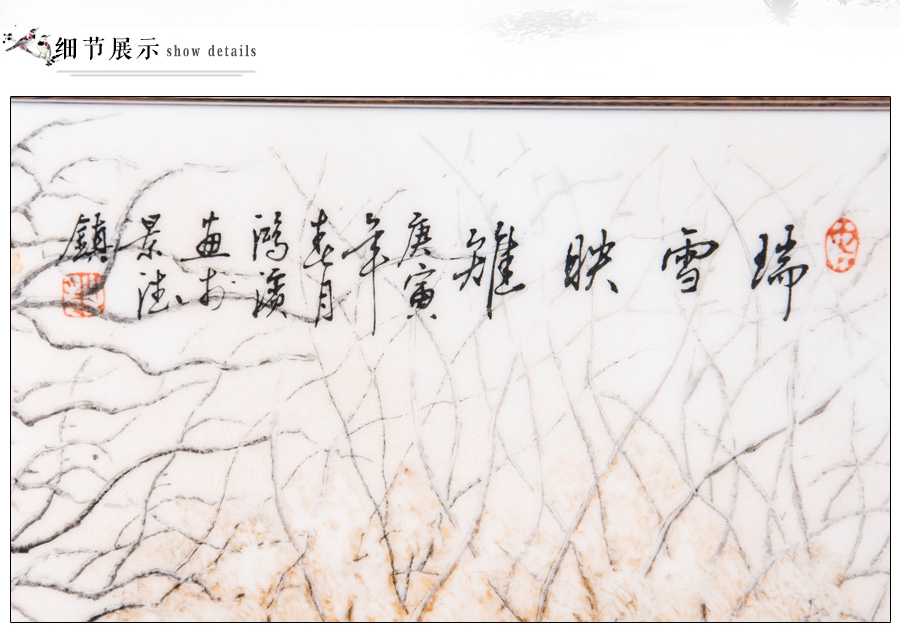 细节展示 show details
瑞雪映雉
庚寅
年
春月
鸿滨
画於
景德
鎮